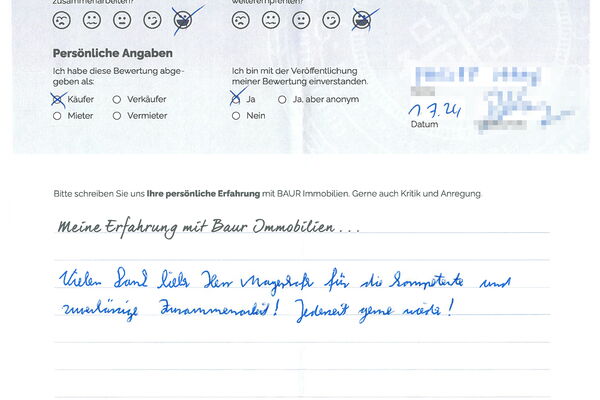 zusammenarbeiten? weiterempfehlen?
Persönliche Angaben
Ich habe diese Bewertung abge-
geben als:
Käufer Verkäufer
Mieter Vermieter
Ich bin mit der Veröffentlichung
meiner Bewertung einverstanden.
Ja Ja, aber anonym
Nein
1.7.24
Datum
Bitte schreiben Sie uns Ihre persönliche Erfahrung mit BAUR Immobilien. Gerne auch Kritik und Anregung.
Meine Erfahrung mit Baur Immobilien...
Vielen Dank lieber Herr für die kompetente und
zuverlässige Zusammenarbeit! Jederzeit gerne wieder!